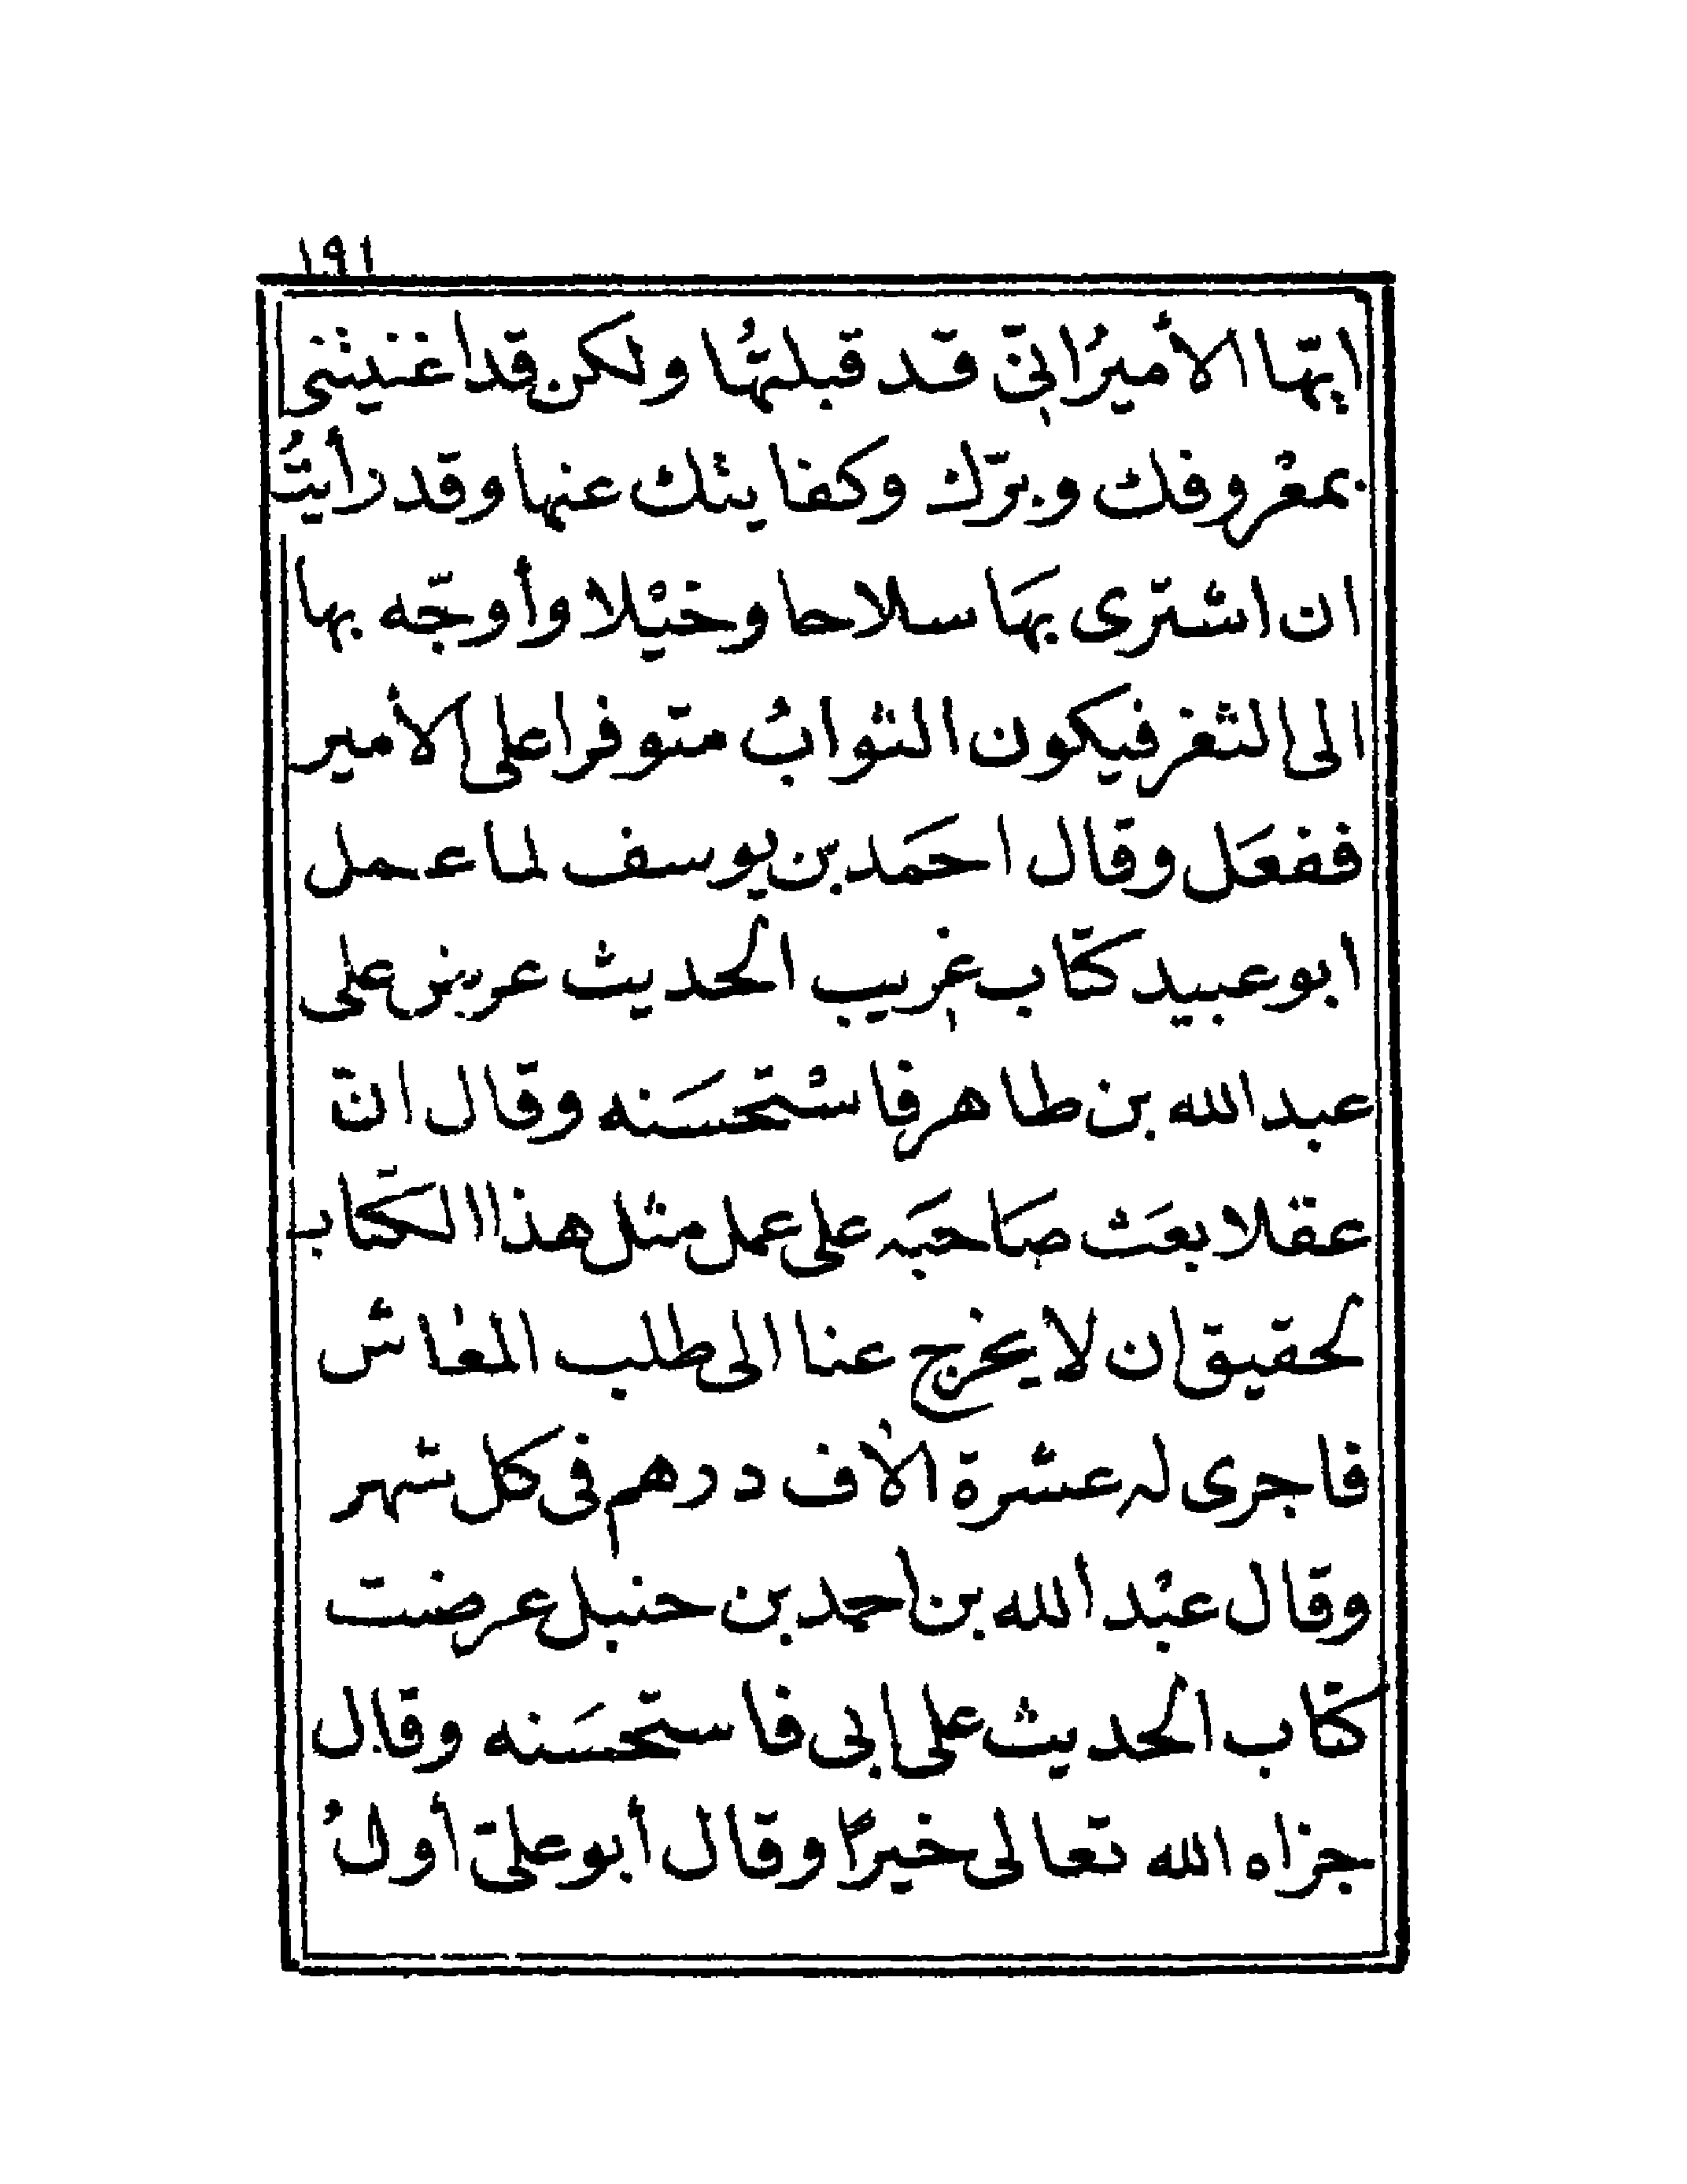 ١٩١
ايّها الأميرُ انىّ قد قبلتُها ولكن قد اغنيتنى
بمعْروفك وبرّك وكفايتك عنها وقد رأيتُ
ان اشترى بهَا سلاحا وخيْلا وأوجّه بها
الى الثغر فيكون الثوابُ متوفرا على الأمير
ففعَل وقال احمَد بن يوسف لما عمل
ابو عبيد كتاب غريب الحديث عرض على
عبد الله بن طاهر فاسْتحسَنه وقال انّ
عقلا بعَث صَاحبَه على عمل مثل هذا الكتاب
لحقيق ان لا يخرج عنا الى طلب المعاش
فاجرى له عشرة الاف درهم فى كل شهر
وقال عبْد الله بن احمد بن حنبل عرضت
كتاب الحديث على ابى فاستحسَنه وقال
جزاه الله تعالى خيرًا وقال أبو علىّ أولُ